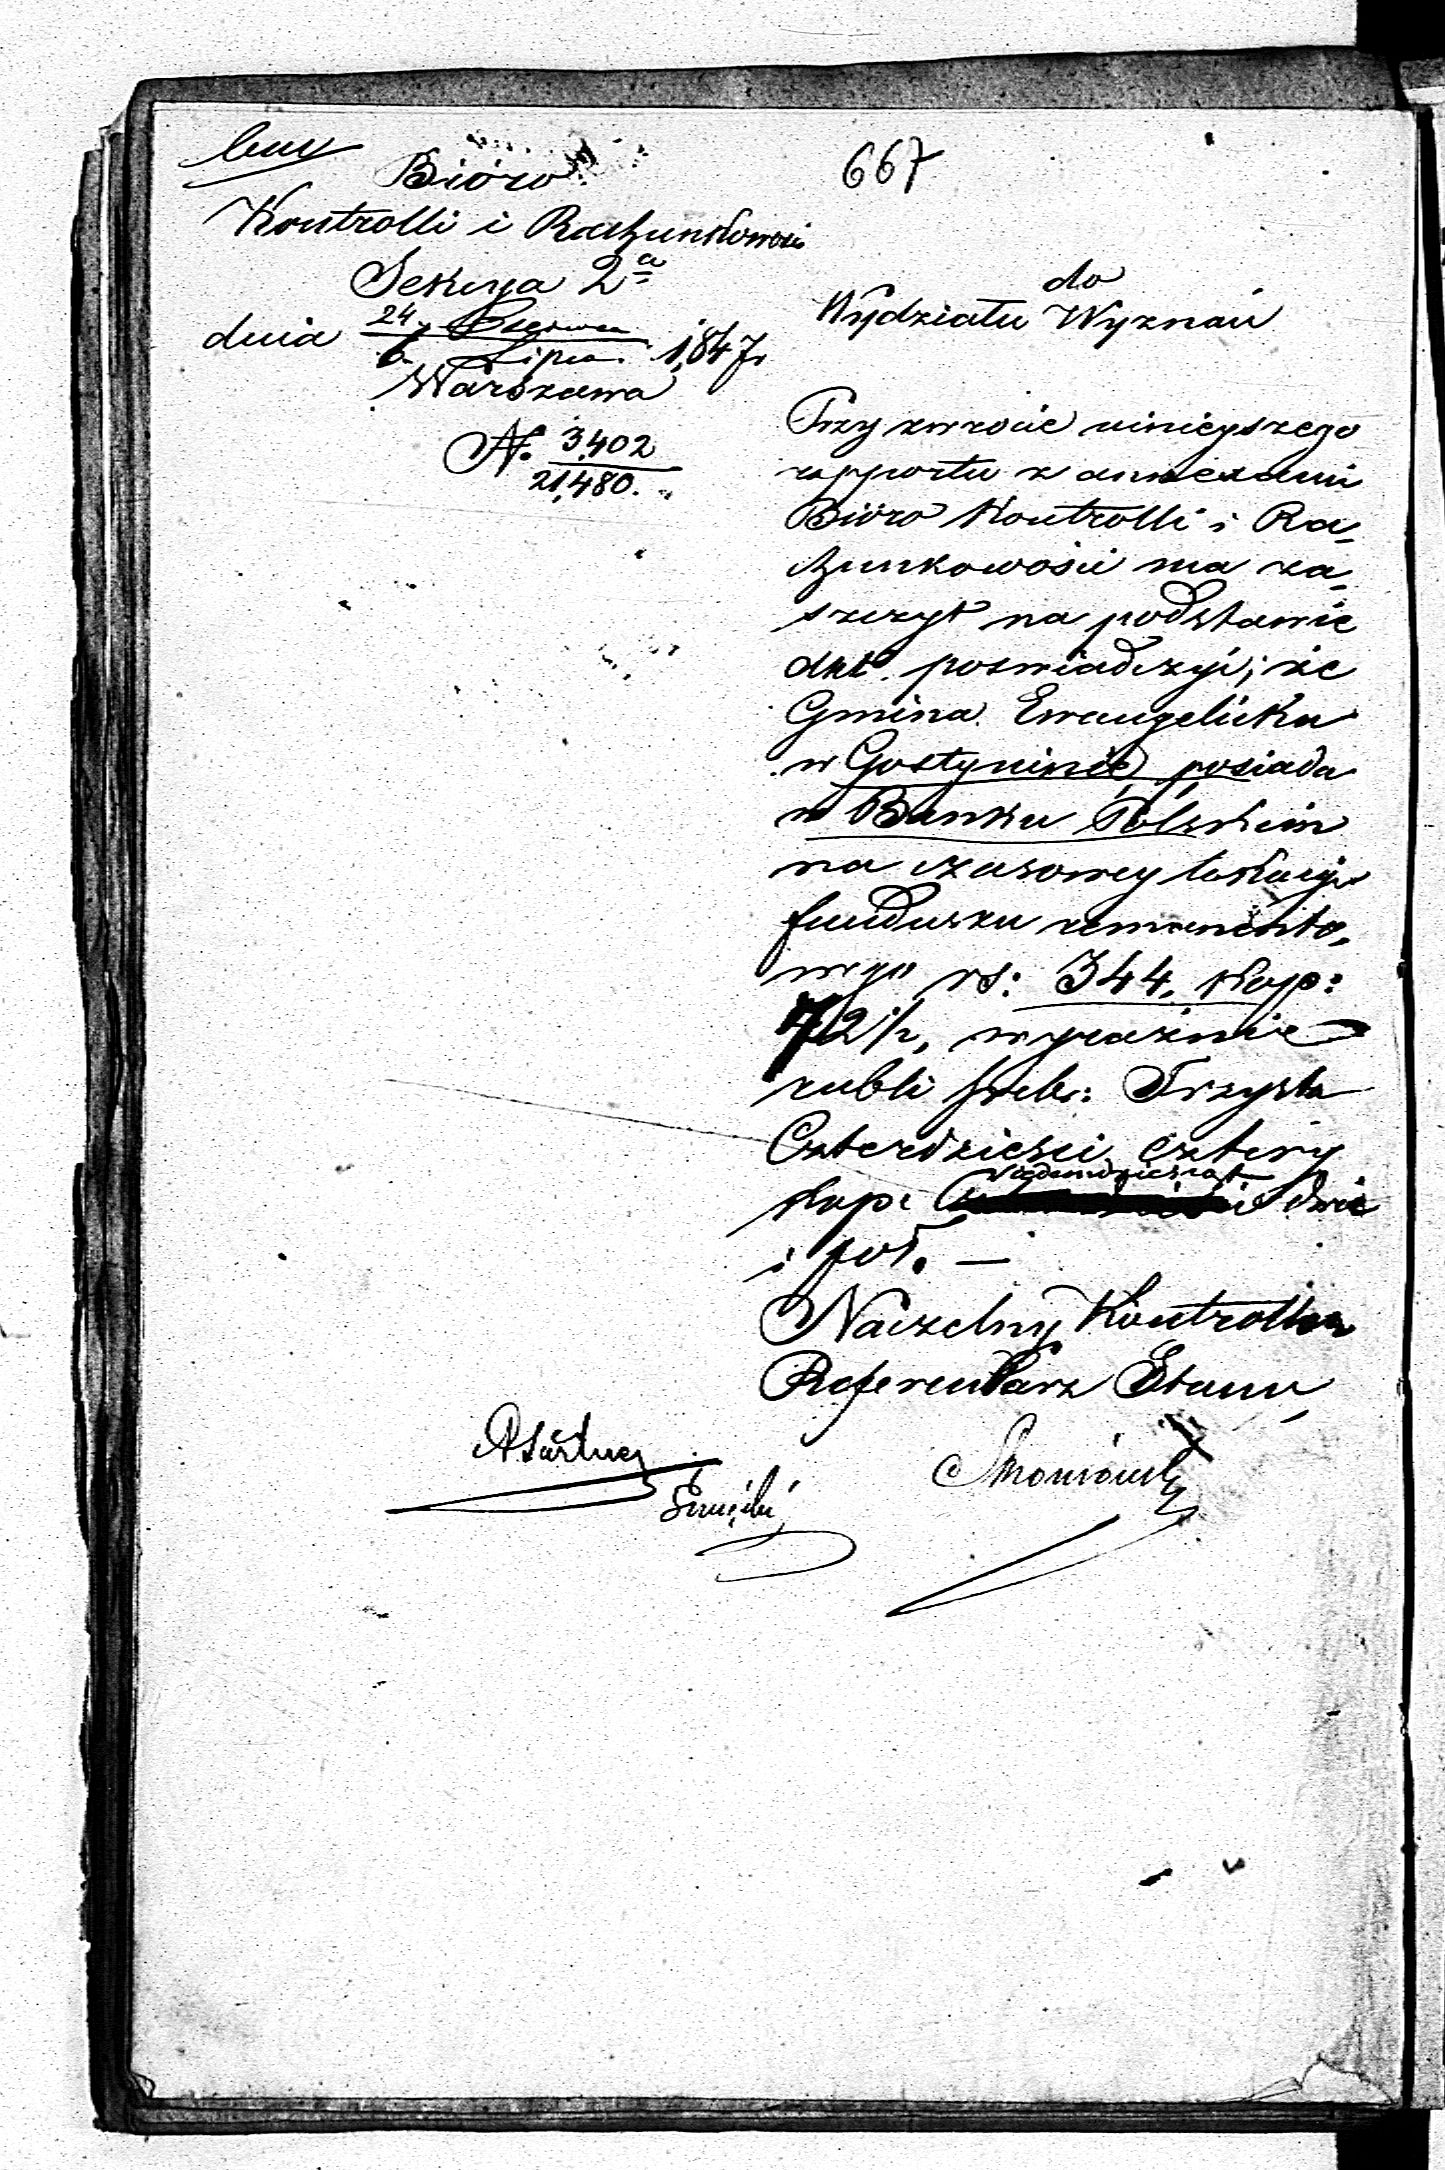 667
Bióro
Kontrolli i Rachunkowości
Sekcya 2a
dnia 24 Czerwca / 6 Lipca 1847 r
Warszawa
N. 3402 / 21,480.
do
Wydziału Wyznań
Przy zwrocie ninieyszego
rapportu z annexami
Bióro Kontrolli i Ra-
chunkowości ma za-
szczyt na podstawie
akt poswiadczyć, że
Gmina Ewangelicka
w Gostyninie posiada
w Banku Polskim
na czasowey lokacyi
funduszu remanento-
wego rs: 344, kop:
72 1/2, wyraźnie
rubli sreb: Trzysta
Czterdzieści cztery
kop: siedemdziesiąt dwie
i pół. —
Naczelny Kontroller
Referendarz Stanu